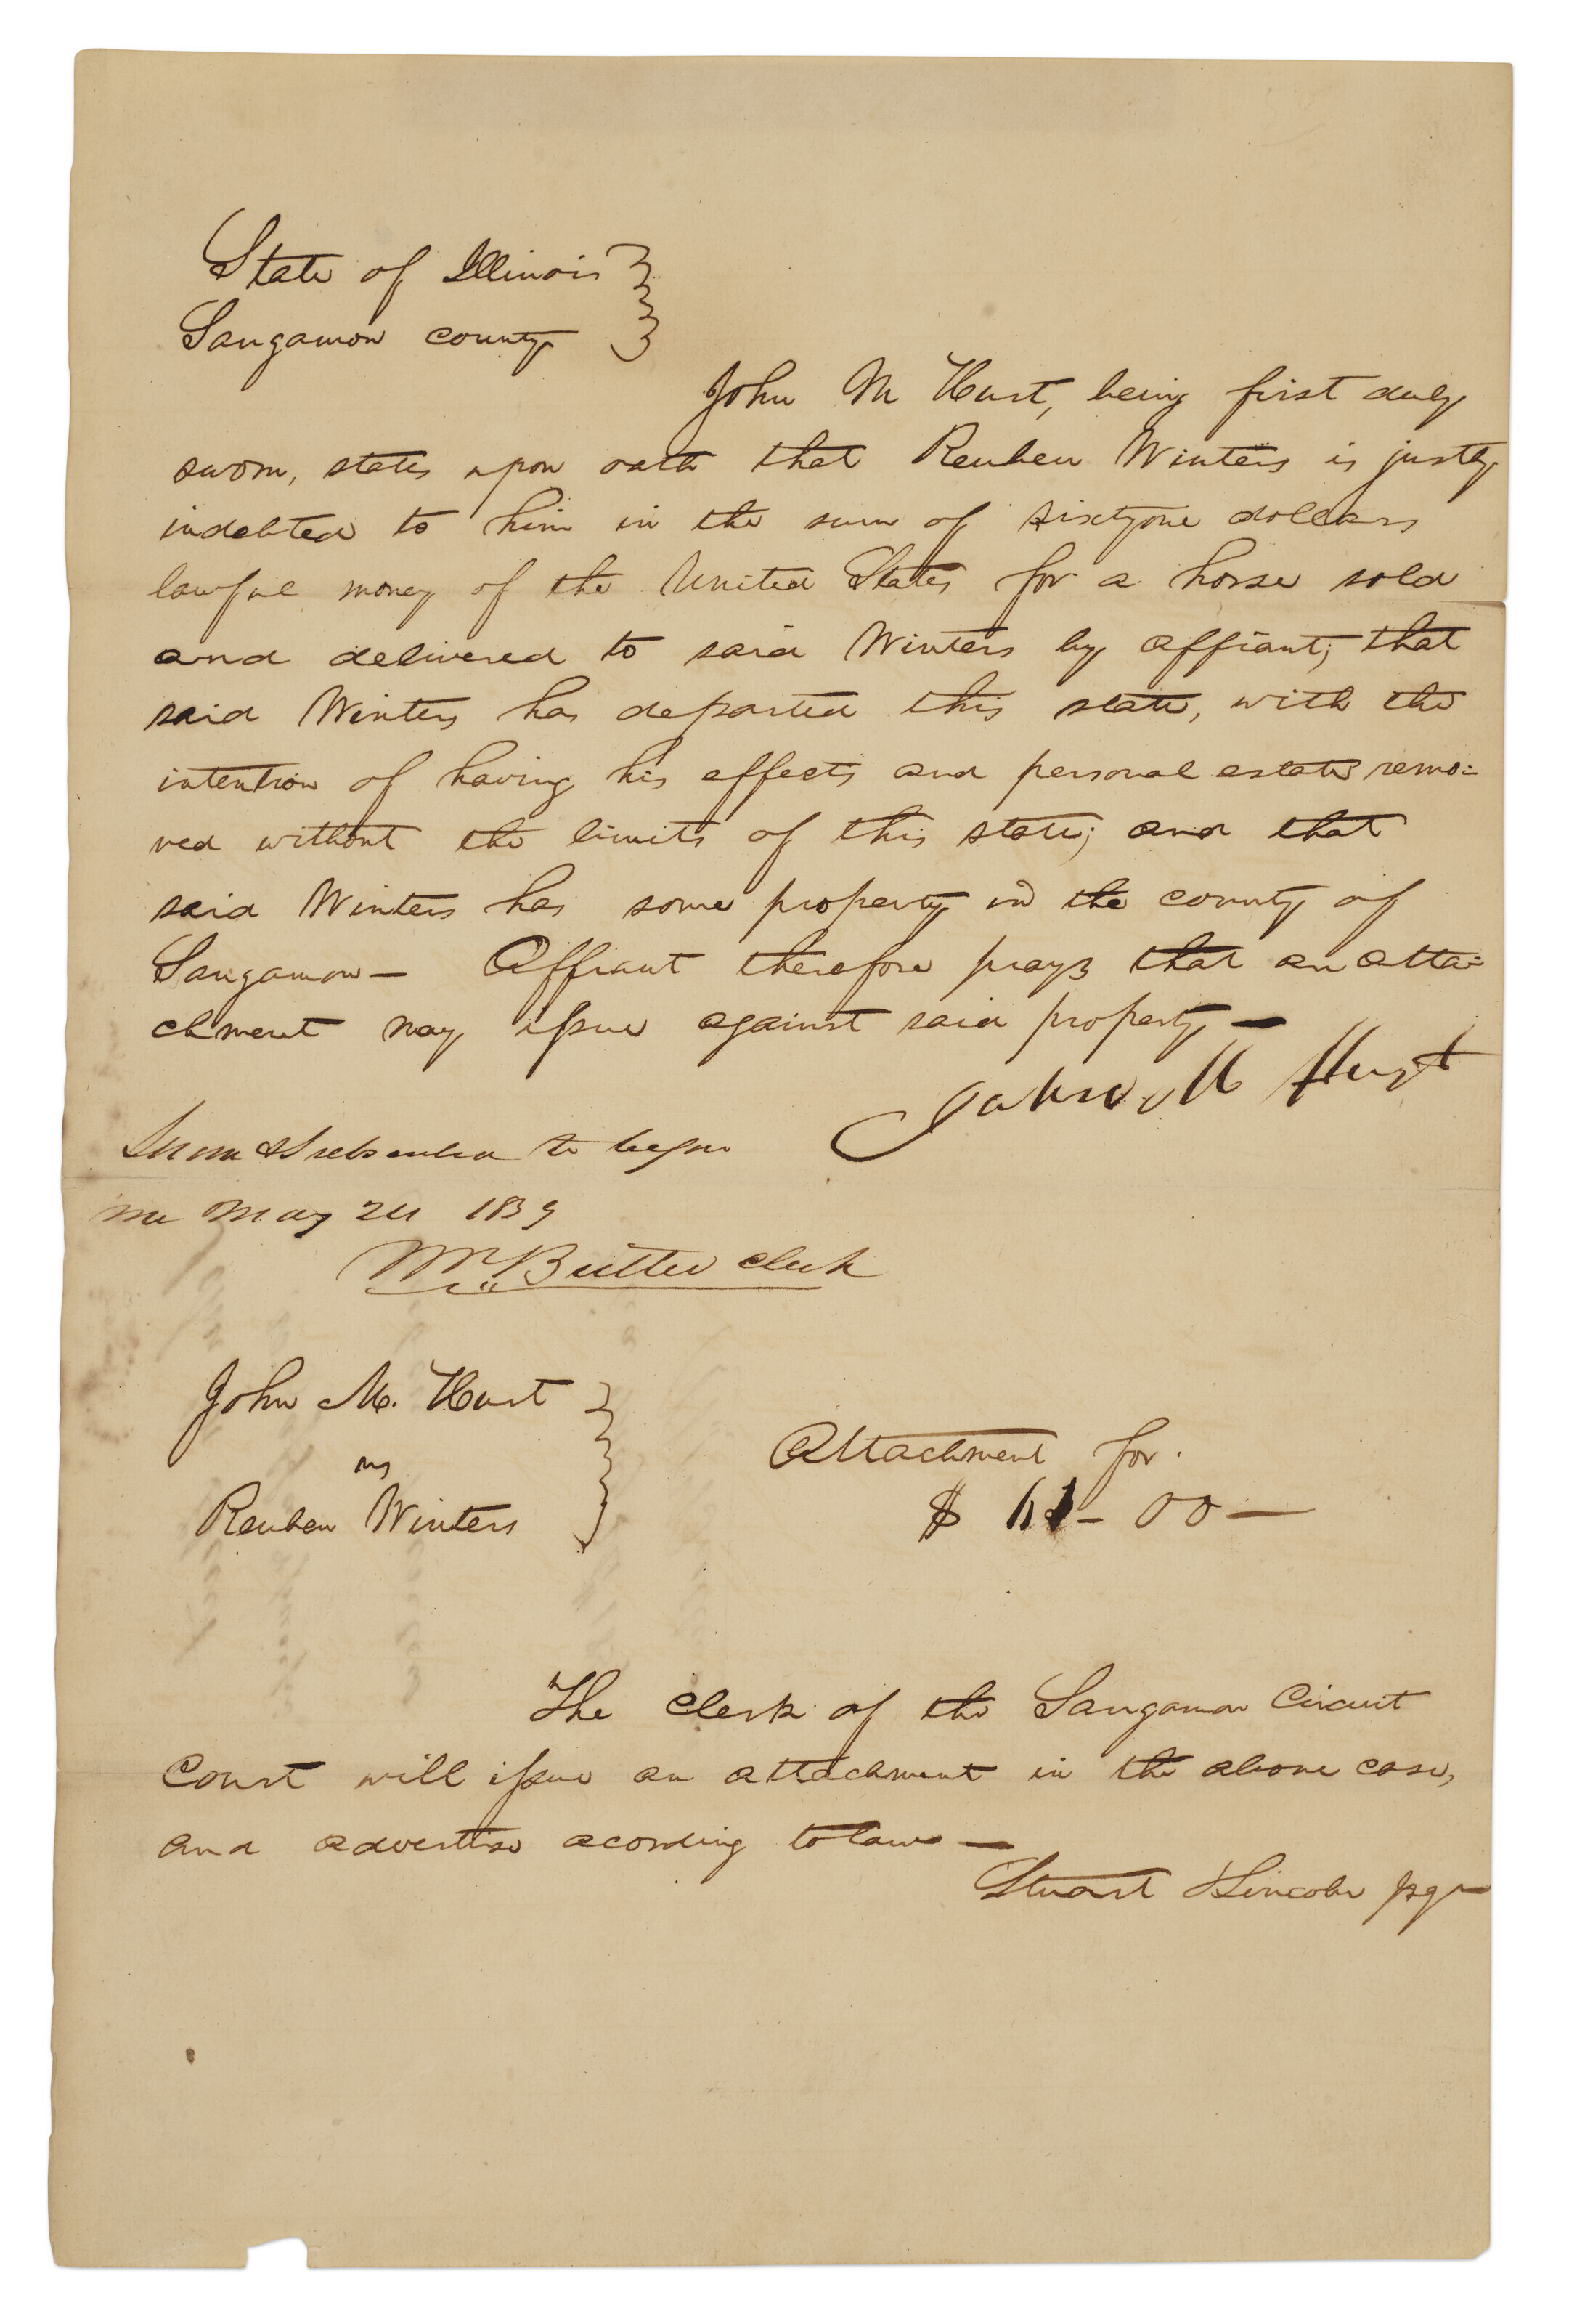 State of Illinois
Sangamon county
John M Hurst, being first duly
sworn, states upon oath that Reuben Winters is justly
indebted to him in the sum of sixtyone dollars
lawful money of the United States for a horse sold
and delivered to said Winters by affiant; that
said Winters has departed this state, with the
intention of having his effects and personal estate remo=
ved without the limits of this state; and that
said Winters has some property in the county of
Sangamon— Affiant therefore prays that an atta=
chment may issue against said property—
John M Hurst
Sworn & subscribed to before
me May 24 1839
Wm Butler clerk
John M. Hurst
vs
Reuben Winters
Attachment for
$ 61–00—
The clerk of the Sangamon Circuit
Court will issue an attachment in the above case,
and advertise acording to law—
Stuart & Lincoln pqr